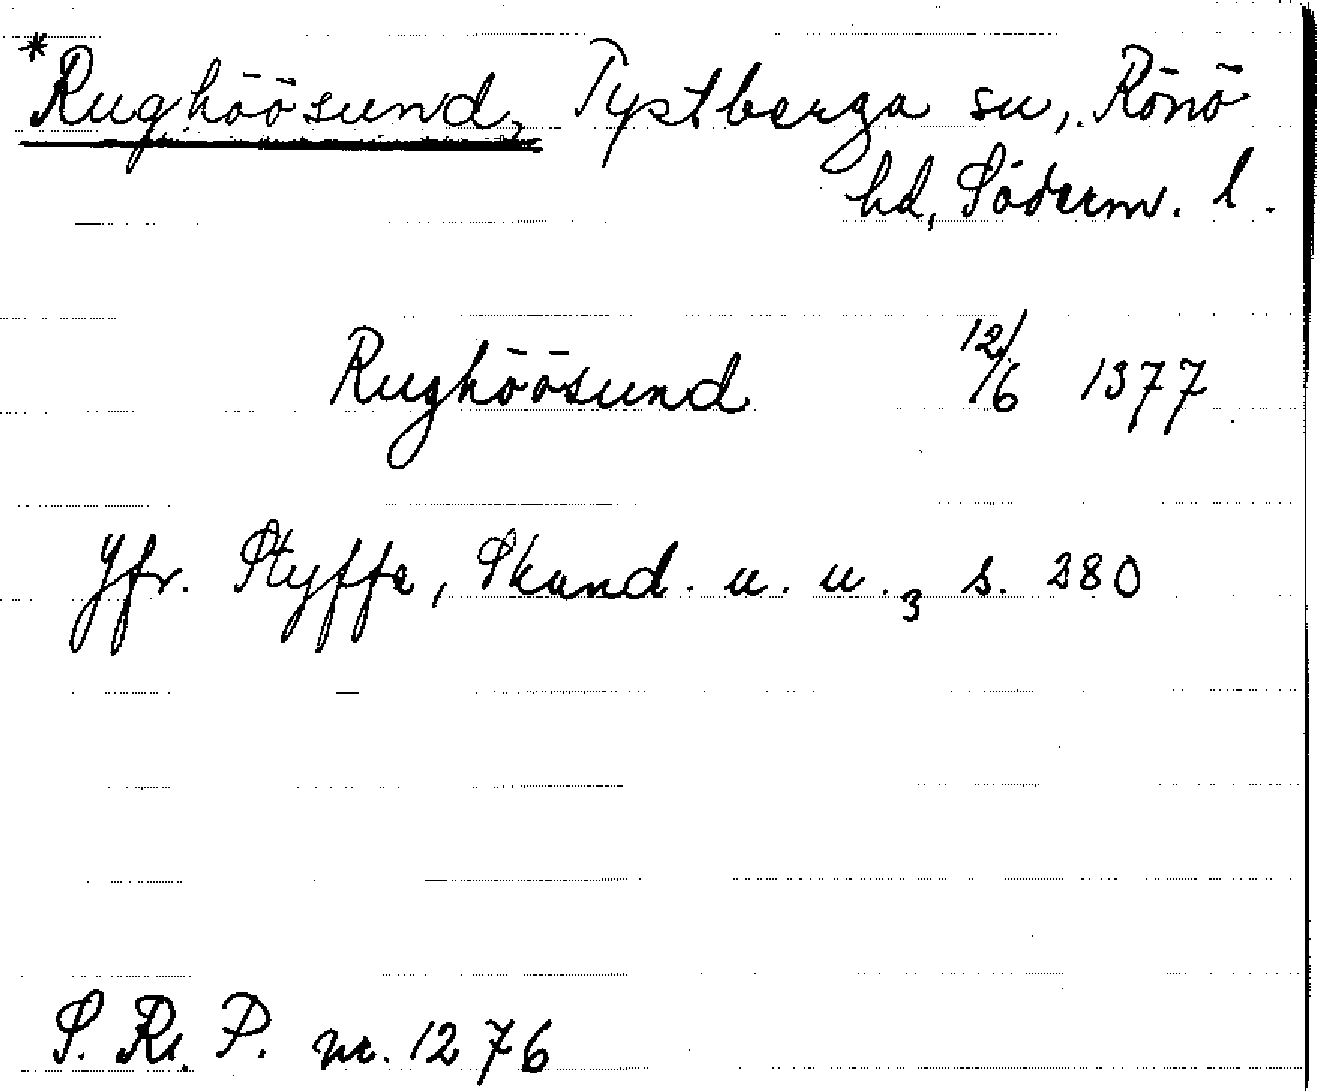 *Rughöösund, Tystberga sn, Rönö
hd, Söderm. l.
Rughöösund 12/6 1377
Jfr. Styffe, Skand. u. u.3 s. 280
S. R. P. nr. 1276